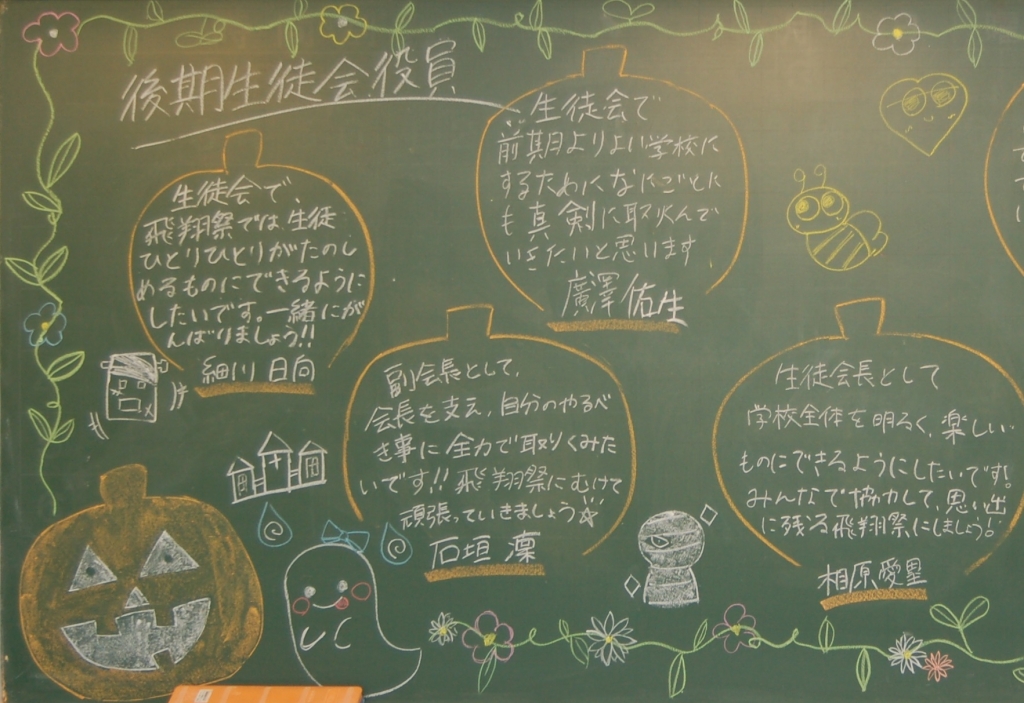 後期生徒会役員
生徒会で、
飛翔祭では、生徒
ひとりひとりがたのし
めるものにできるように
したいです。一緒にが
んばりましょう!!
細川 日向
生徒会で
前期よりよい学校に
するためになにごとに
も真剣に取り組んで
いきたいと思います
廣澤 佑生
副会長として、
会長を支え、自分のやるべ
き事に全力で取りくみた
いです!! 飛翔祭にむけて
頑張っていきましょう☆
石垣 凜
生徒会長として
学校全体を明るく、楽しい
ものにできるようにしたいです!
みんなで協力して、思い出
に残る飛翔祭にしましょう!
相原 愛里